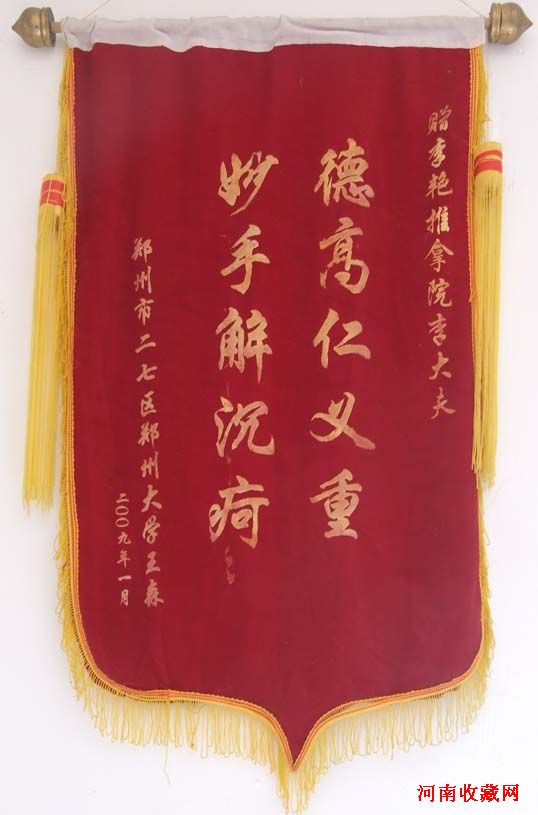 赠李艳推拿院李大夫
德高仁义重
妙手解沉疴
郑州市二七区郑州大学王森
二〇〇九年一月
河南收藏网